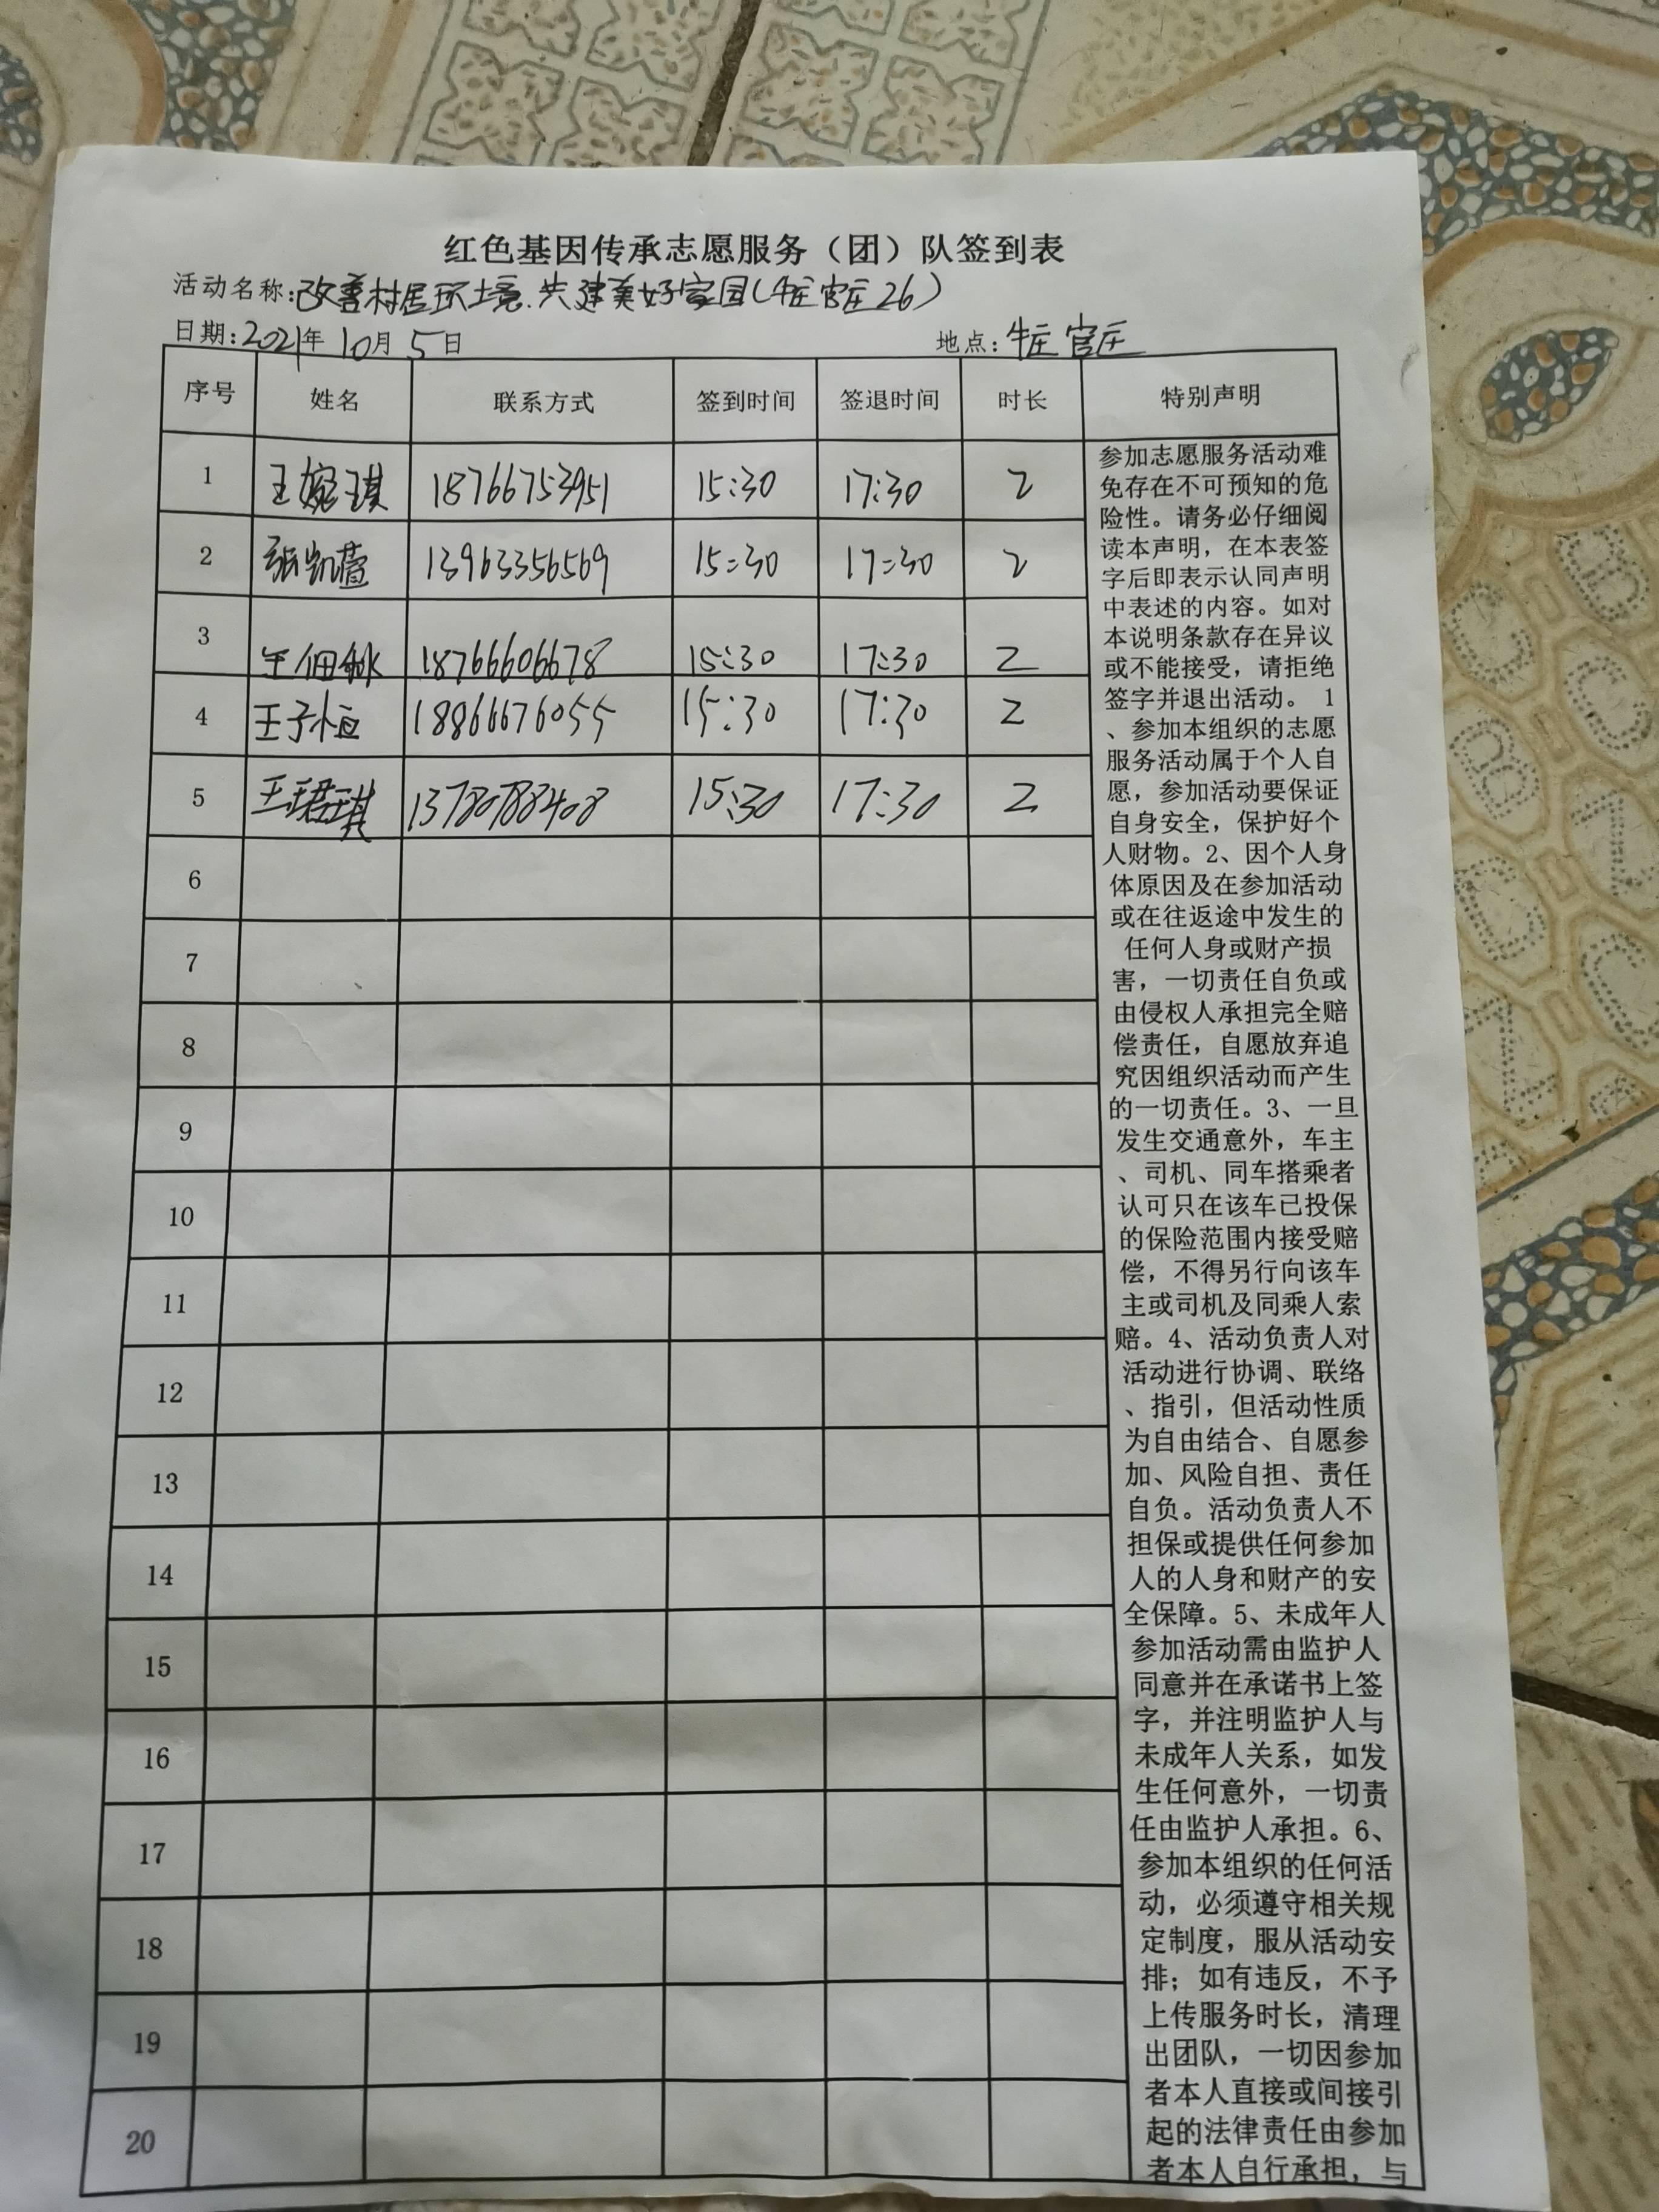 红色基因传承志愿服务（团）队签到表
活动名称:改善村居环境.共建美好家园(牛庄官庄26)
日期:2021年10月5日 地点:牛庄官庄
序号 姓名 联系方式 签到时间 签退时间 时长 特别声明
1 王婉琪 18766753951 15:30 17:30 2
2 张凯萱 13963356569 15:30 17:30 2
3 18766606678 15:30 17:30 2
4 王子恒 18866676055 15:30 17:30 2
5 王珺琪 13780788408 15:30 17:30 2
6
7
8
9
10
11
12
13
14
15
16
17
18
19
20
参加志愿服务活动难
免存在不可预知的危
险性。请务必仔细阅
读本声明，在本表签
字后即表示认同声明
中表述的内容。如对
本说明条款存在异议
或不能接受，请拒绝
签字并退出活动。 1
、参加本组织的志愿
服务活动属于个人自
愿，参加活动要保证
自身安全，保护好个
人财物。2、因个人身
体原因及在参加活动
或在往返途中发生的
任何人身或财产损
害，一切责任自负或
由侵权人承担完全赔
偿责任，自愿放弃追
究因组织活动而产生
的一切责任。3、一旦
发生交通意外，车主
、司机、同车搭乘者
认可只在该车已投保
的保险范围内接受赔
偿，不得另行向该车
主或司机及同乘人索
赔。4、活动负责人对
活动进行协调、联络
、指引，但活动性质
为自由结合、自愿参
加、风险自担、责任
自负。活动负责人不
担保或提供任何参加
人的人身和财产的安
全保障。5、未成年人
参加活动需由监护人
同意并在承诺书上签
字，并注明监护人与
未成年人关系，如发
生任何意外，一切责
任由监护人承担。6、
参加本组织的任何活
动，必须遵守相关规
定制度，服从活动安
排；如有违反，不予
上传服务时长，清理
出团队，一切因参加
者本人直接或间接引
起的法律责任由参加
者本人自行承担，与